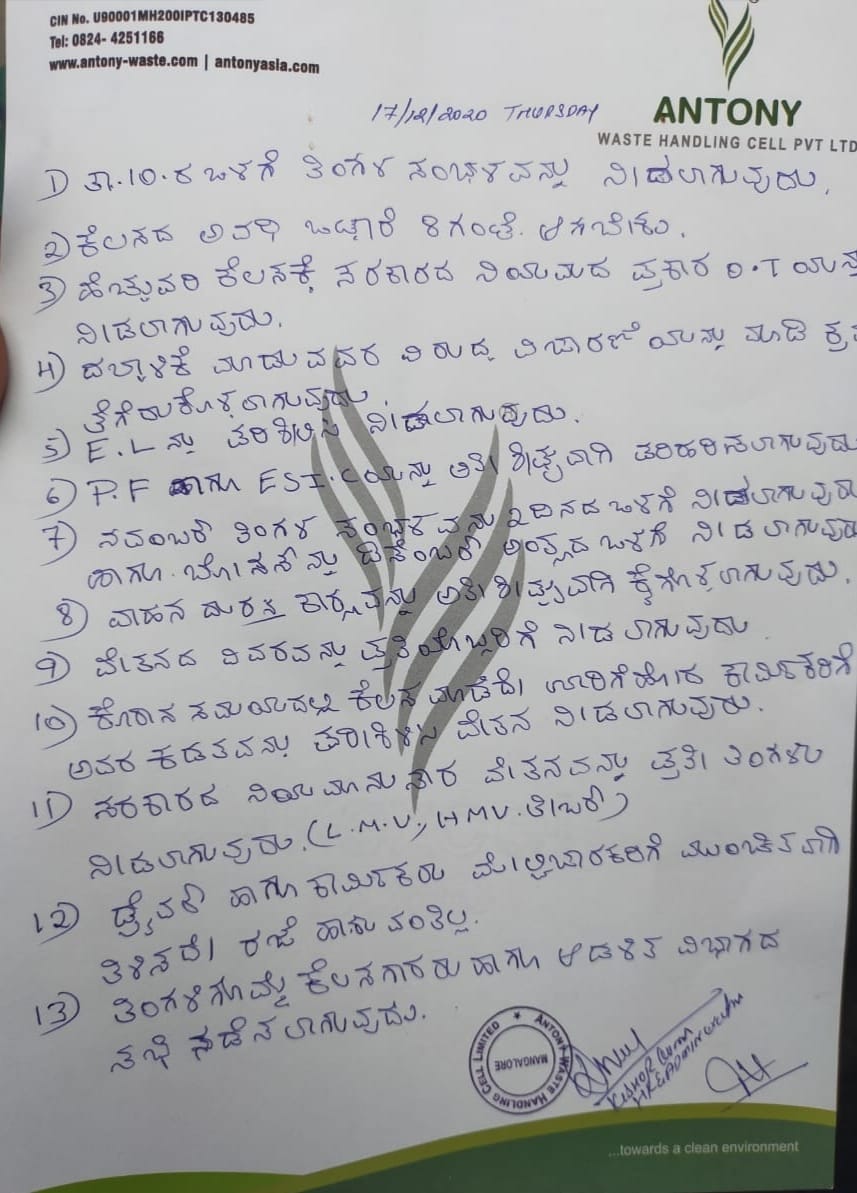 CIN No. U90001MH200IPTC130485
Tel: 0824- 4251166
www.antony-waste.com | antonyasia.com
ANTONY
WASTE HANDLING CELL PVT LTD
17/12/2020 THURSDAY
1) ತಾ.10.ರ ಒಳಗೆ ತಿಂಗಳ ಸಂಭಳವನ್ನು ನೀಡಲಾಗುವುದು.
2) ಕೆಲಸದ ಅವಧಿ ಒಟ್ಟಾರೆ 8 ಗಂಟೆ. ಆಗಬೇಕು.
3) ಹೆಚ್ಚುವರಿ ಕೆಲಸಕ್ಕೆ ಸರಕಾರದ ನಿಯಮದ ಪ್ರಕಾರ O.T ಯನ್ನು
ನೀಡಲಾಗುವುದು.
4) ದಬ್ಬಾಳಿಕೆ ಮಾಡುವವರ ವಿರುದ್ಧ ವಿಚಾರಣೆಯನ್ನು ಮಾಡಿ ಕ್ರ
ತೆಗೆದುಕೊಳ್ಳಲಾಗುವುದು.
5) E.L ನ್ನು ಪರಿಶೀಲಿಸಿ ನೀಡಲಾಗುವುದು.
6) P.F ಹಾಗೂ ESI.C ಯನ್ನು ಅತೀ ಶೀಘ್ರವಾಗಿ ಪರಿಹರಿಸಲಾಗುವುದು
7) ನವಂಬರ್ ತಿಂಗಳ ಸಂಭಳವನ್ನು 2 ದಿನದ ಒಳಗೆ ನೀಡಲಾಗುವುದು
ಹಾಗೂ. ಬೋನಸ್ ನ್ನು ಡಿಸೆಂಬರ್ ಅಂತ್ಯದ ಒಳಗೆ ನೀಡಲಾಗುವುದು
8) ವಾಹನ ದುರಸ್ತಿ ಕಾರ್ಯವನ್ನು ಅತೀ ಶೀಘ್ರವಾಗಿ ಕೈಗೊಳ್ಳಲಾಗುವುದು.
9) ವೇತನದ ವಿವರವನ್ನು ಪ್ರತಿಯೊಬ್ಬರಿಗೆ ನೀಡಲಾಗುವುದು.
10) ಕೊರೊನ ಸಮಯದಲ್ಲಿ ಕೆಲಸ ಮಾಡದೇ ಊರಿಗೆ ಹೋದ ಕಾರ್ಮಿಕರಿಗೆ
ಅವರ ಕಡತವನ್ನು ಪರಿಶೀಲಿಸಿ ವೇತನ ನೀಡಲಾಗುವುದು.
11) ಸರಕಾರದ ನಿಯಮಾನುಸಾರ ವೇತನವನ್ನು ಪ್ರತೀ ತಿಂಗಳು
ನೀಡಲಾಗುವುದು. (L.M.V, HMV. ಲೇಬರ್)
12) ಡ್ರೈವರ್ ಹಾಗೂ ಕಾರ್ಮಿಕರು ಮೇಲ್ವಿಚಾರಕರಿಗೆ ಮುಂಚಿತವಾಗಿ
ತಿಳಿಸದೇ ರಜೆ ಹಾಕುವಂತಿಲ್ಲ.
13) ತಿಂಗಳಿಗೊಮ್ಮೆ ಕೆಲಸಗಾರರು ಹಾಗೂ ಆಡಳಿತ ವಿಭಾಗದ
ಸಭೆ ನಡೆಸಲಾಗುವುದು.
ANTONY WASTE HANDLING CELL LIMITED
MANGALORE
...towards a clean environment